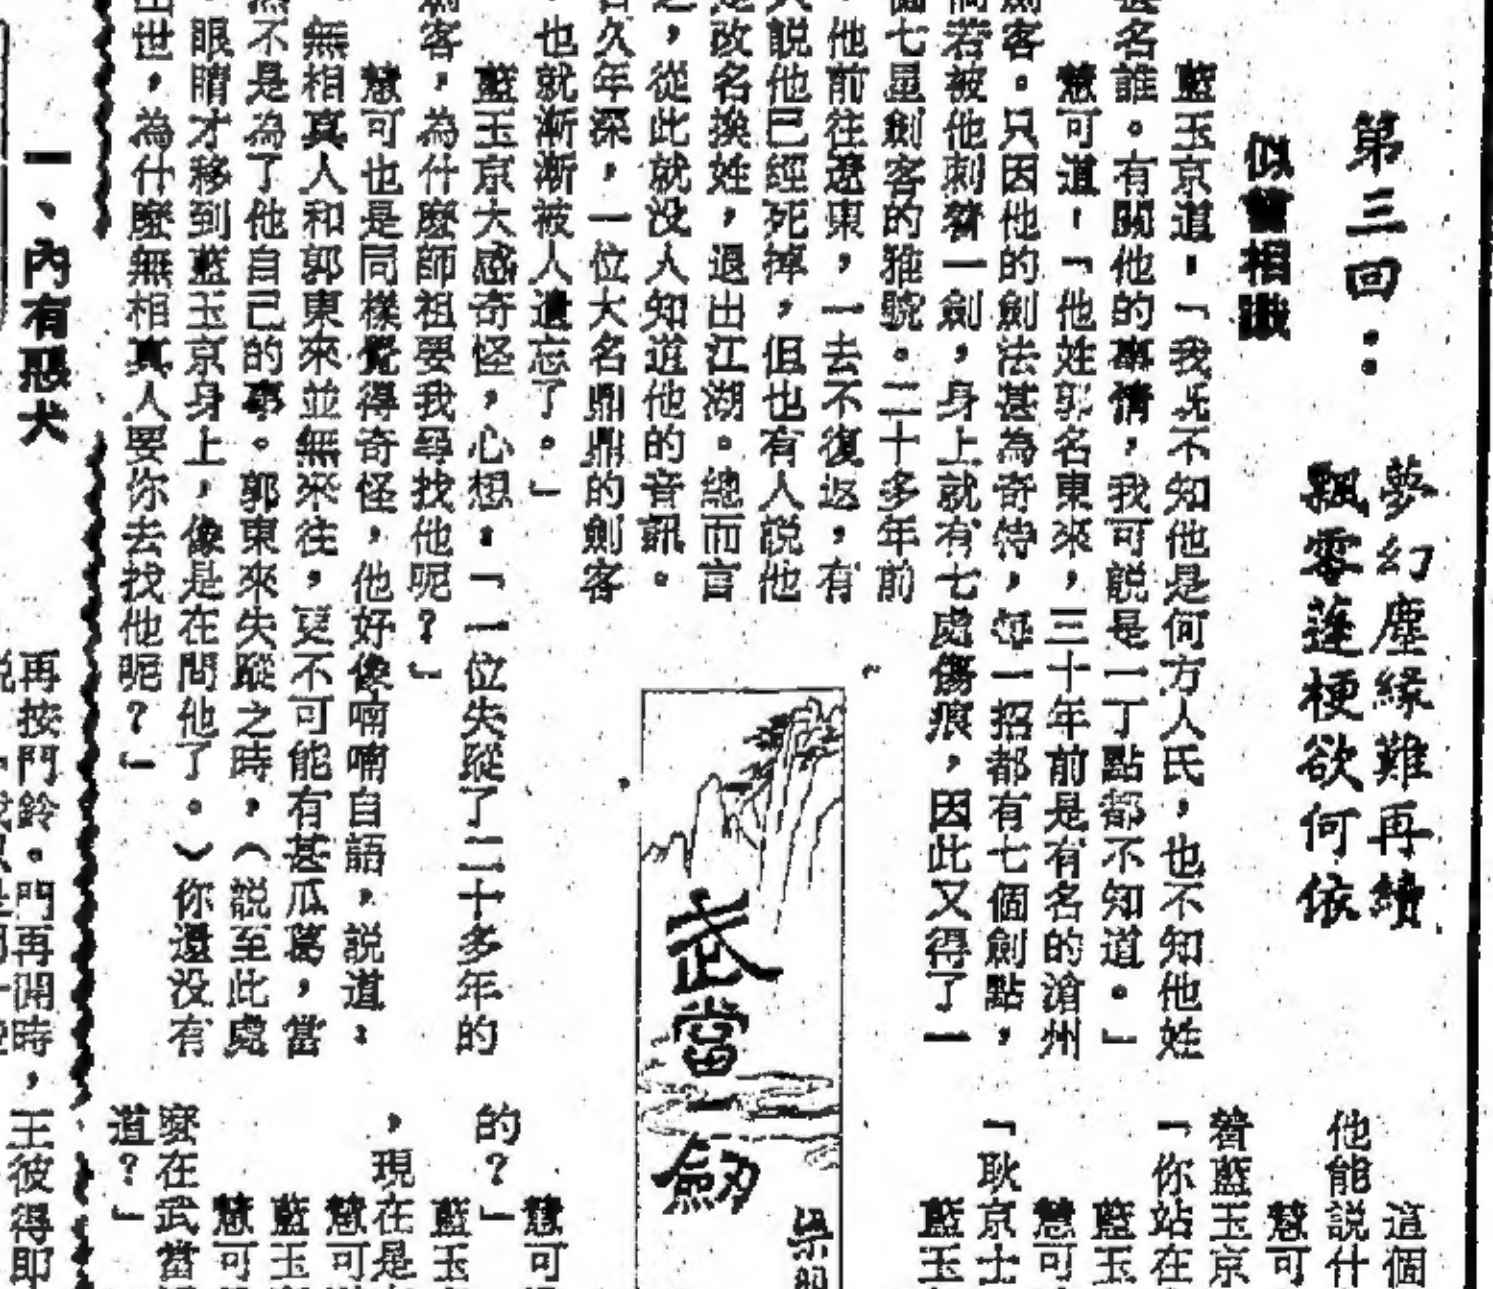 第三回：
夢幻塵緣難再續
飄零蓬梗欲何依
似曾相識
藍玉京道：「我既不知他是何方人氏，也不知他姓
甚名誰。有關他的事情，我可說是一丁點都不知道。」
慧可道：「他姓郭名東來，三十年前是有名的滄州
劍客。只因他的劍法甚為奇特，每一招都有七個劍點，
倘若被他刺着一劍，身上就有七處傷痕，因此又得了一
個七星劍客的雅號。二十多年前
他前往遼東，一去不復返，有
人說他已經死掉，但也有人說他
是改名換姓，退出江湖。總而言
之，從此就沒人知道他的音訊。
日久年深，一位大名鼎鼎的劍客
，也就漸漸被人遺忘了。」
藍玉京大感奇怪，心想：「一位失蹤了二十多年的
劍客，為什麼師祖要我尋找他呢？」
慧可也是同樣覺得奇怪，他好像喃喃自語，說道：
無相真人和郭東來並無來往，更不可能有甚瓜葛，當
然不是為了他自己的事。郭東來失蹤之時，（說至此處
，眼睛才移到藍玉京身上，像是在問他了。）你還沒有
出世，為什麼無相真人要你去找他呢？」
武當一劍
梁
這個
他能說什
慧可
着藍玉京
「你站在
藍玉
慧可
「耿京士
藍玉
慧可
的？」
藍玉
，現在是
慧可
藍玉
慧可
麼在武當
道？」
一、內有惡犬
再按門鈴。門再開時，王彼得即